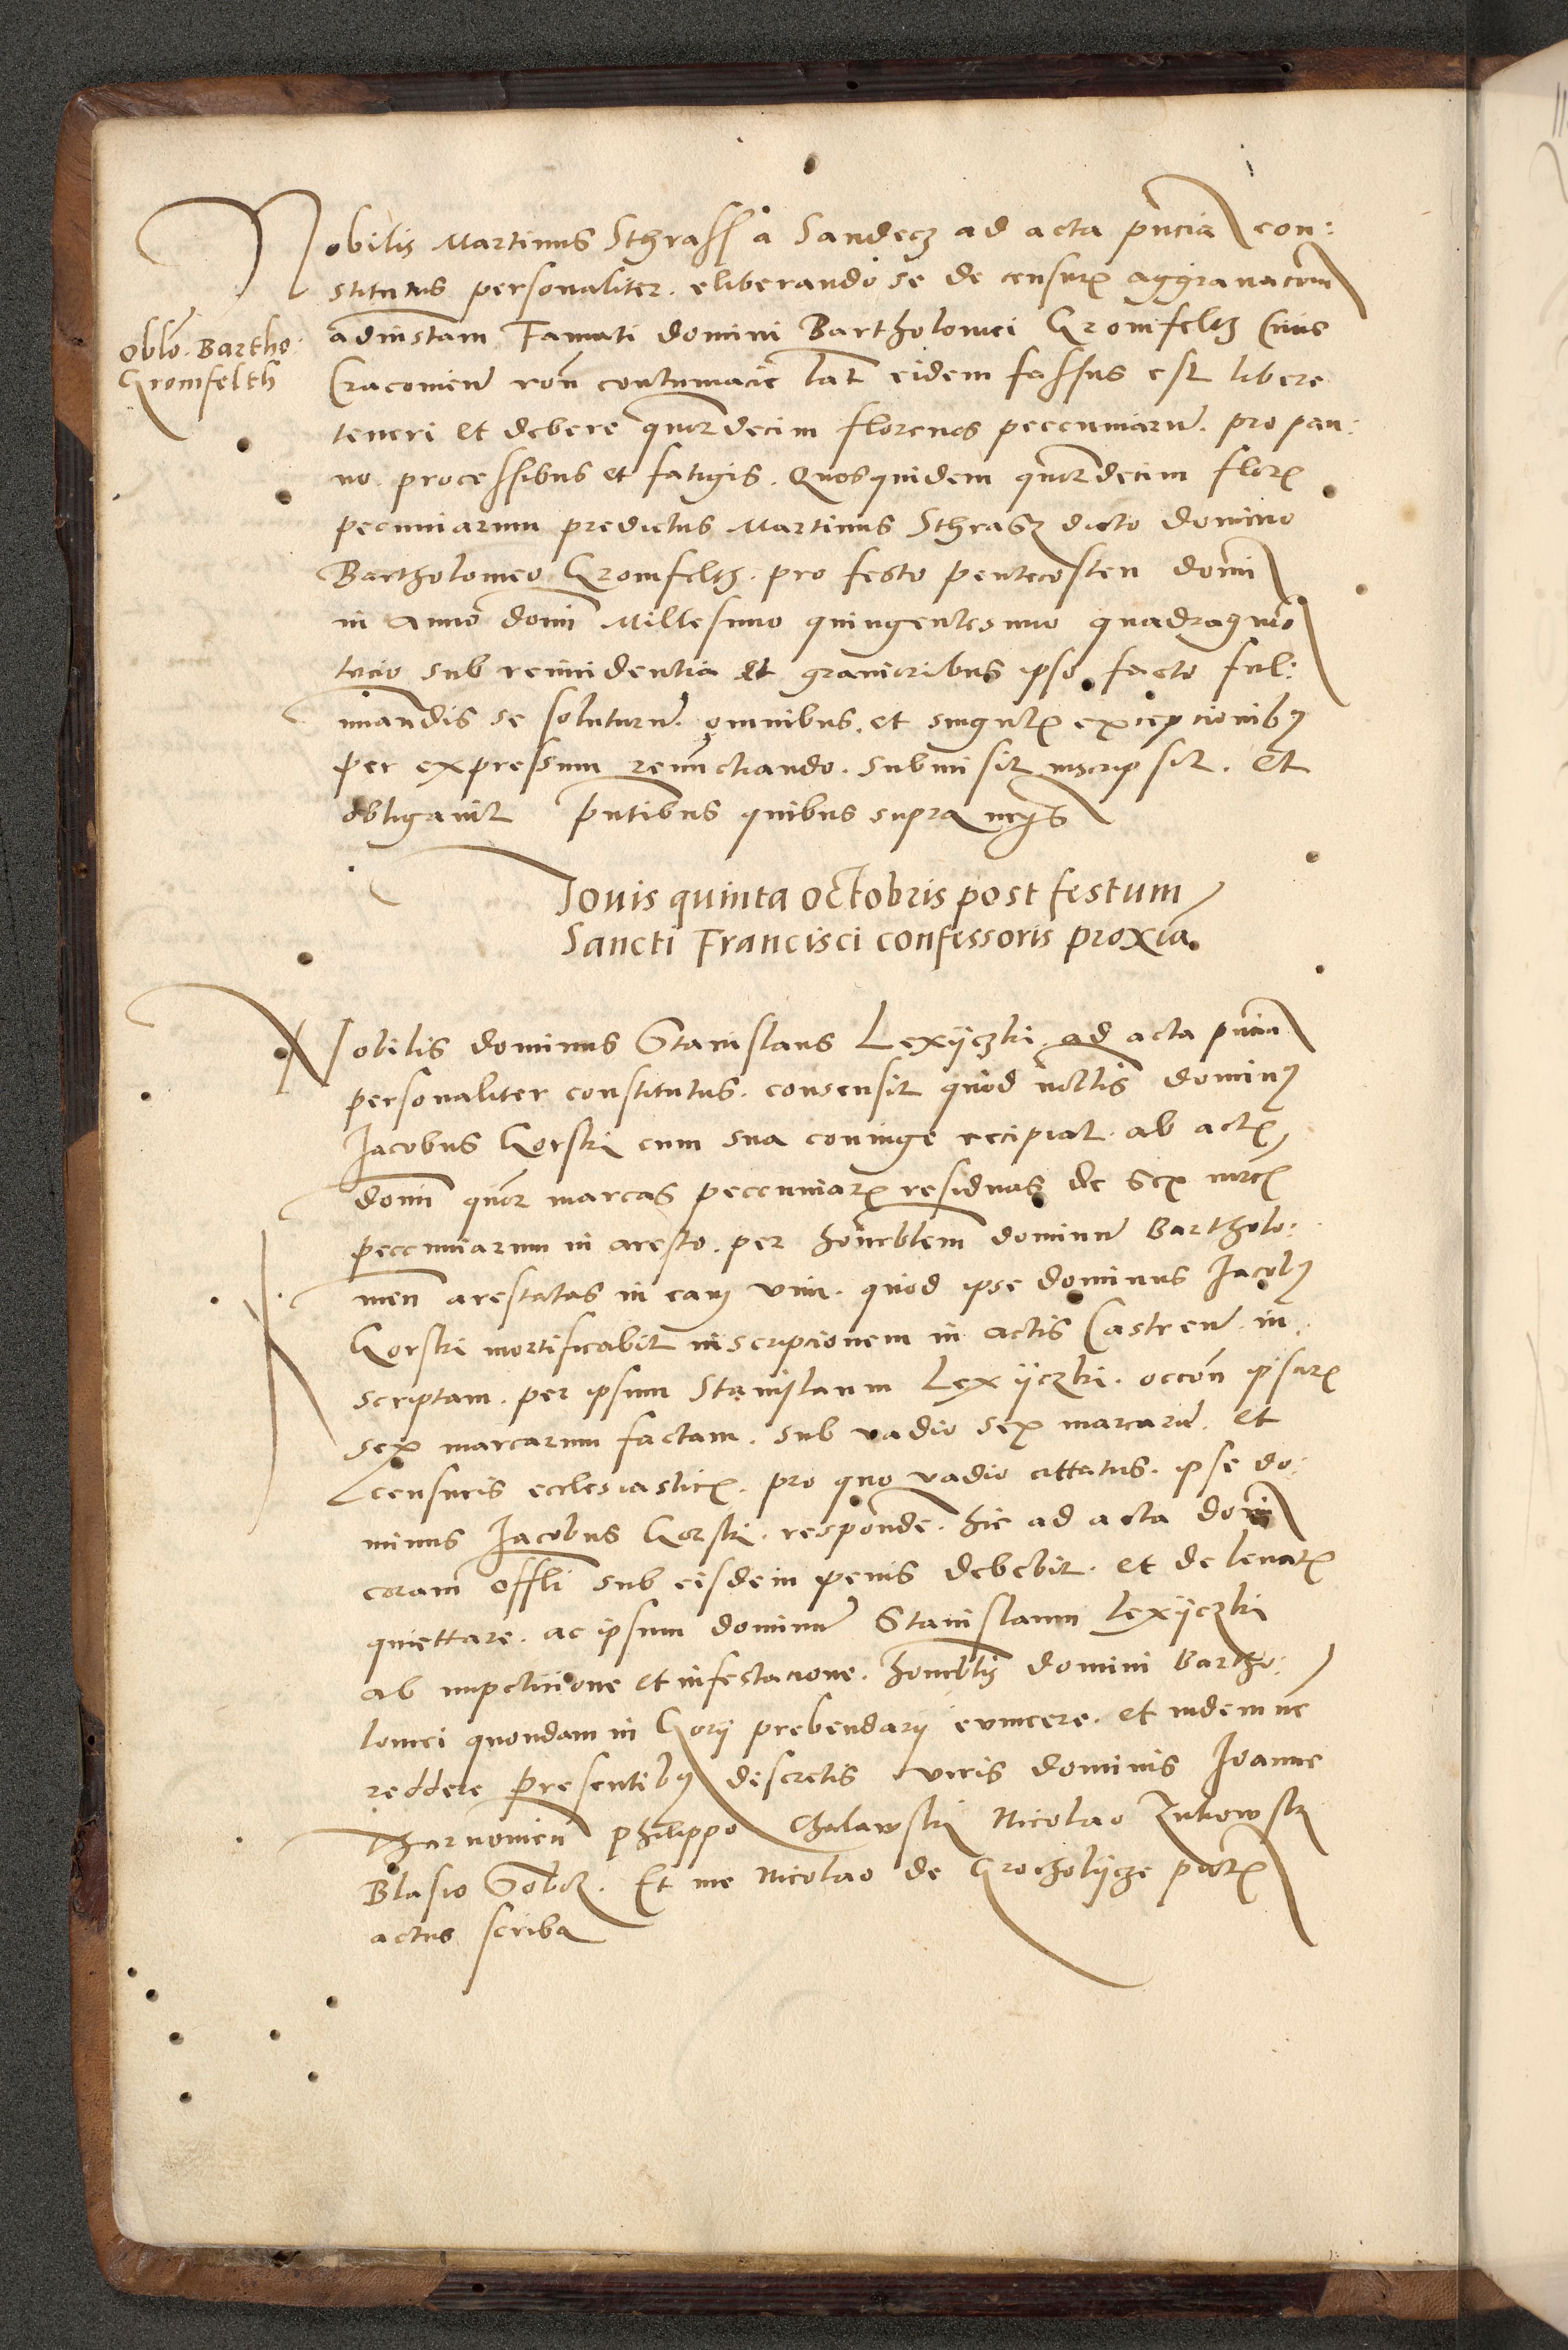 Nobilis Martinus Sthrass a Sandecz ad acta pncia con:
stitutus personaliter. eliberando se de censur aggravacom
Oblo. Bartho:
Gromfelth
adinstam Famati domini Bartholomei Gromfeltz Civis
Cracovien ron contumacie lat eidem fassus est libere
teneri et debere quordecim florenos peccuniarum. pro pan:
no processibus et fatigis. Quosquidem quordecim flor
pecuniarum predictus Martinus Sthrasz dicto domino
Bartholomeo Gromfeltz. pro festo pentecosten domi
in Anno domi Millesimo quingentesimo quadragmo
tercio sub reincidentia et gravioribus ipso facto ful:
minandis se soluturum. omnibus. et singulis excepcionibus
per expressum renunctiando. submisit inscripsit. et
obligavit pntibus quibus supra
Iovis quinta octobris post festum
Sancti Francisci confessoris proxia
Nobilis dominus Stanislaus Lexijczki. ad acta pncia
personaliter constitutus. consensit quod nobilis dominus
Jacobus Gorski cum sua coniuge recipiat. ab actis
domi quor marcas peccuniar residuas de sex mrcis
peccuniarum in aresto. per honorblem dominum Bartholo:
meum arestatas in eam vim. quod ipse dominus Jacobus
Gorski mortificabit inscripcionem in actis Castren. in:
scriptam. per ipsum Stanislaum Lexijczki. occon ipsar
sex marcarum factam. sub vadio sex marcarum. et
censuris ecclesiasticis. pro quo vadio cittatus. ipse do:
minus Jacobus Gorski. responde. hic ad acta domi
coram offli sub eisdem penis debebit. et de levatis
quiettare. ac ipsum dominum Stanislaum Lexijczki
ab impeticione et infestacione. honorblis domini Bartho:
lomei quondam in Gorij prebendarij evincere. et indemne
reddere presentibus discretis viris dominis Joanne
Tharnovien Philippo Chalawski Nicolao Zukowski
Blasio. Et me Nicolao de Grocholijcze pntis
actus scriba